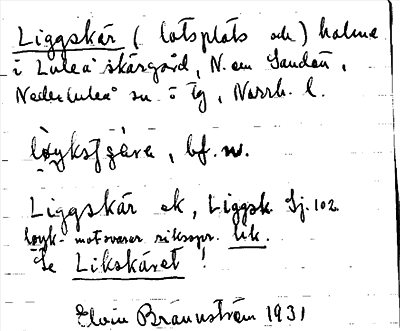 Liggskär (lotsplats och) holme
i Luleå skärgård, N. om Sandön,
Nederluleå sn o tg, Norrb. l.
bf. n.
Liggskär ek, Liggsk. Sj. 102
løyk- motsvarar riksspr. lik.
Se Likskäret!
Elvin Brännström 1931